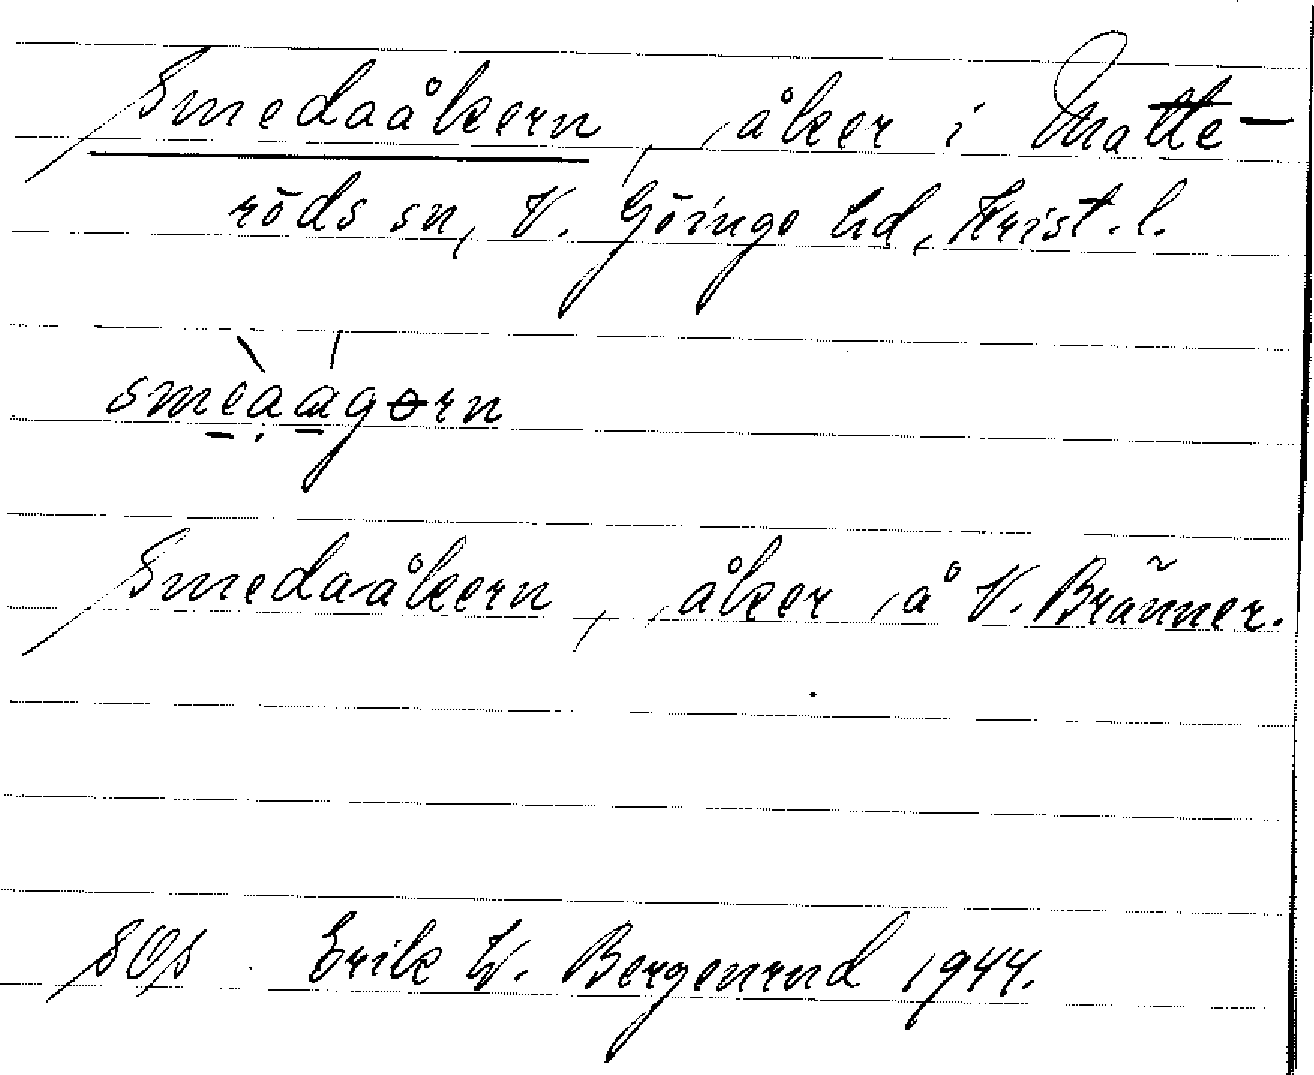 Smedaåkern, åker i Matte-
röds sn, V. Göinge hd, Krist. l.
smèaágərn
Smedaåkern, åker å V. Bränner.
Erik W. Bergenrud 1944.